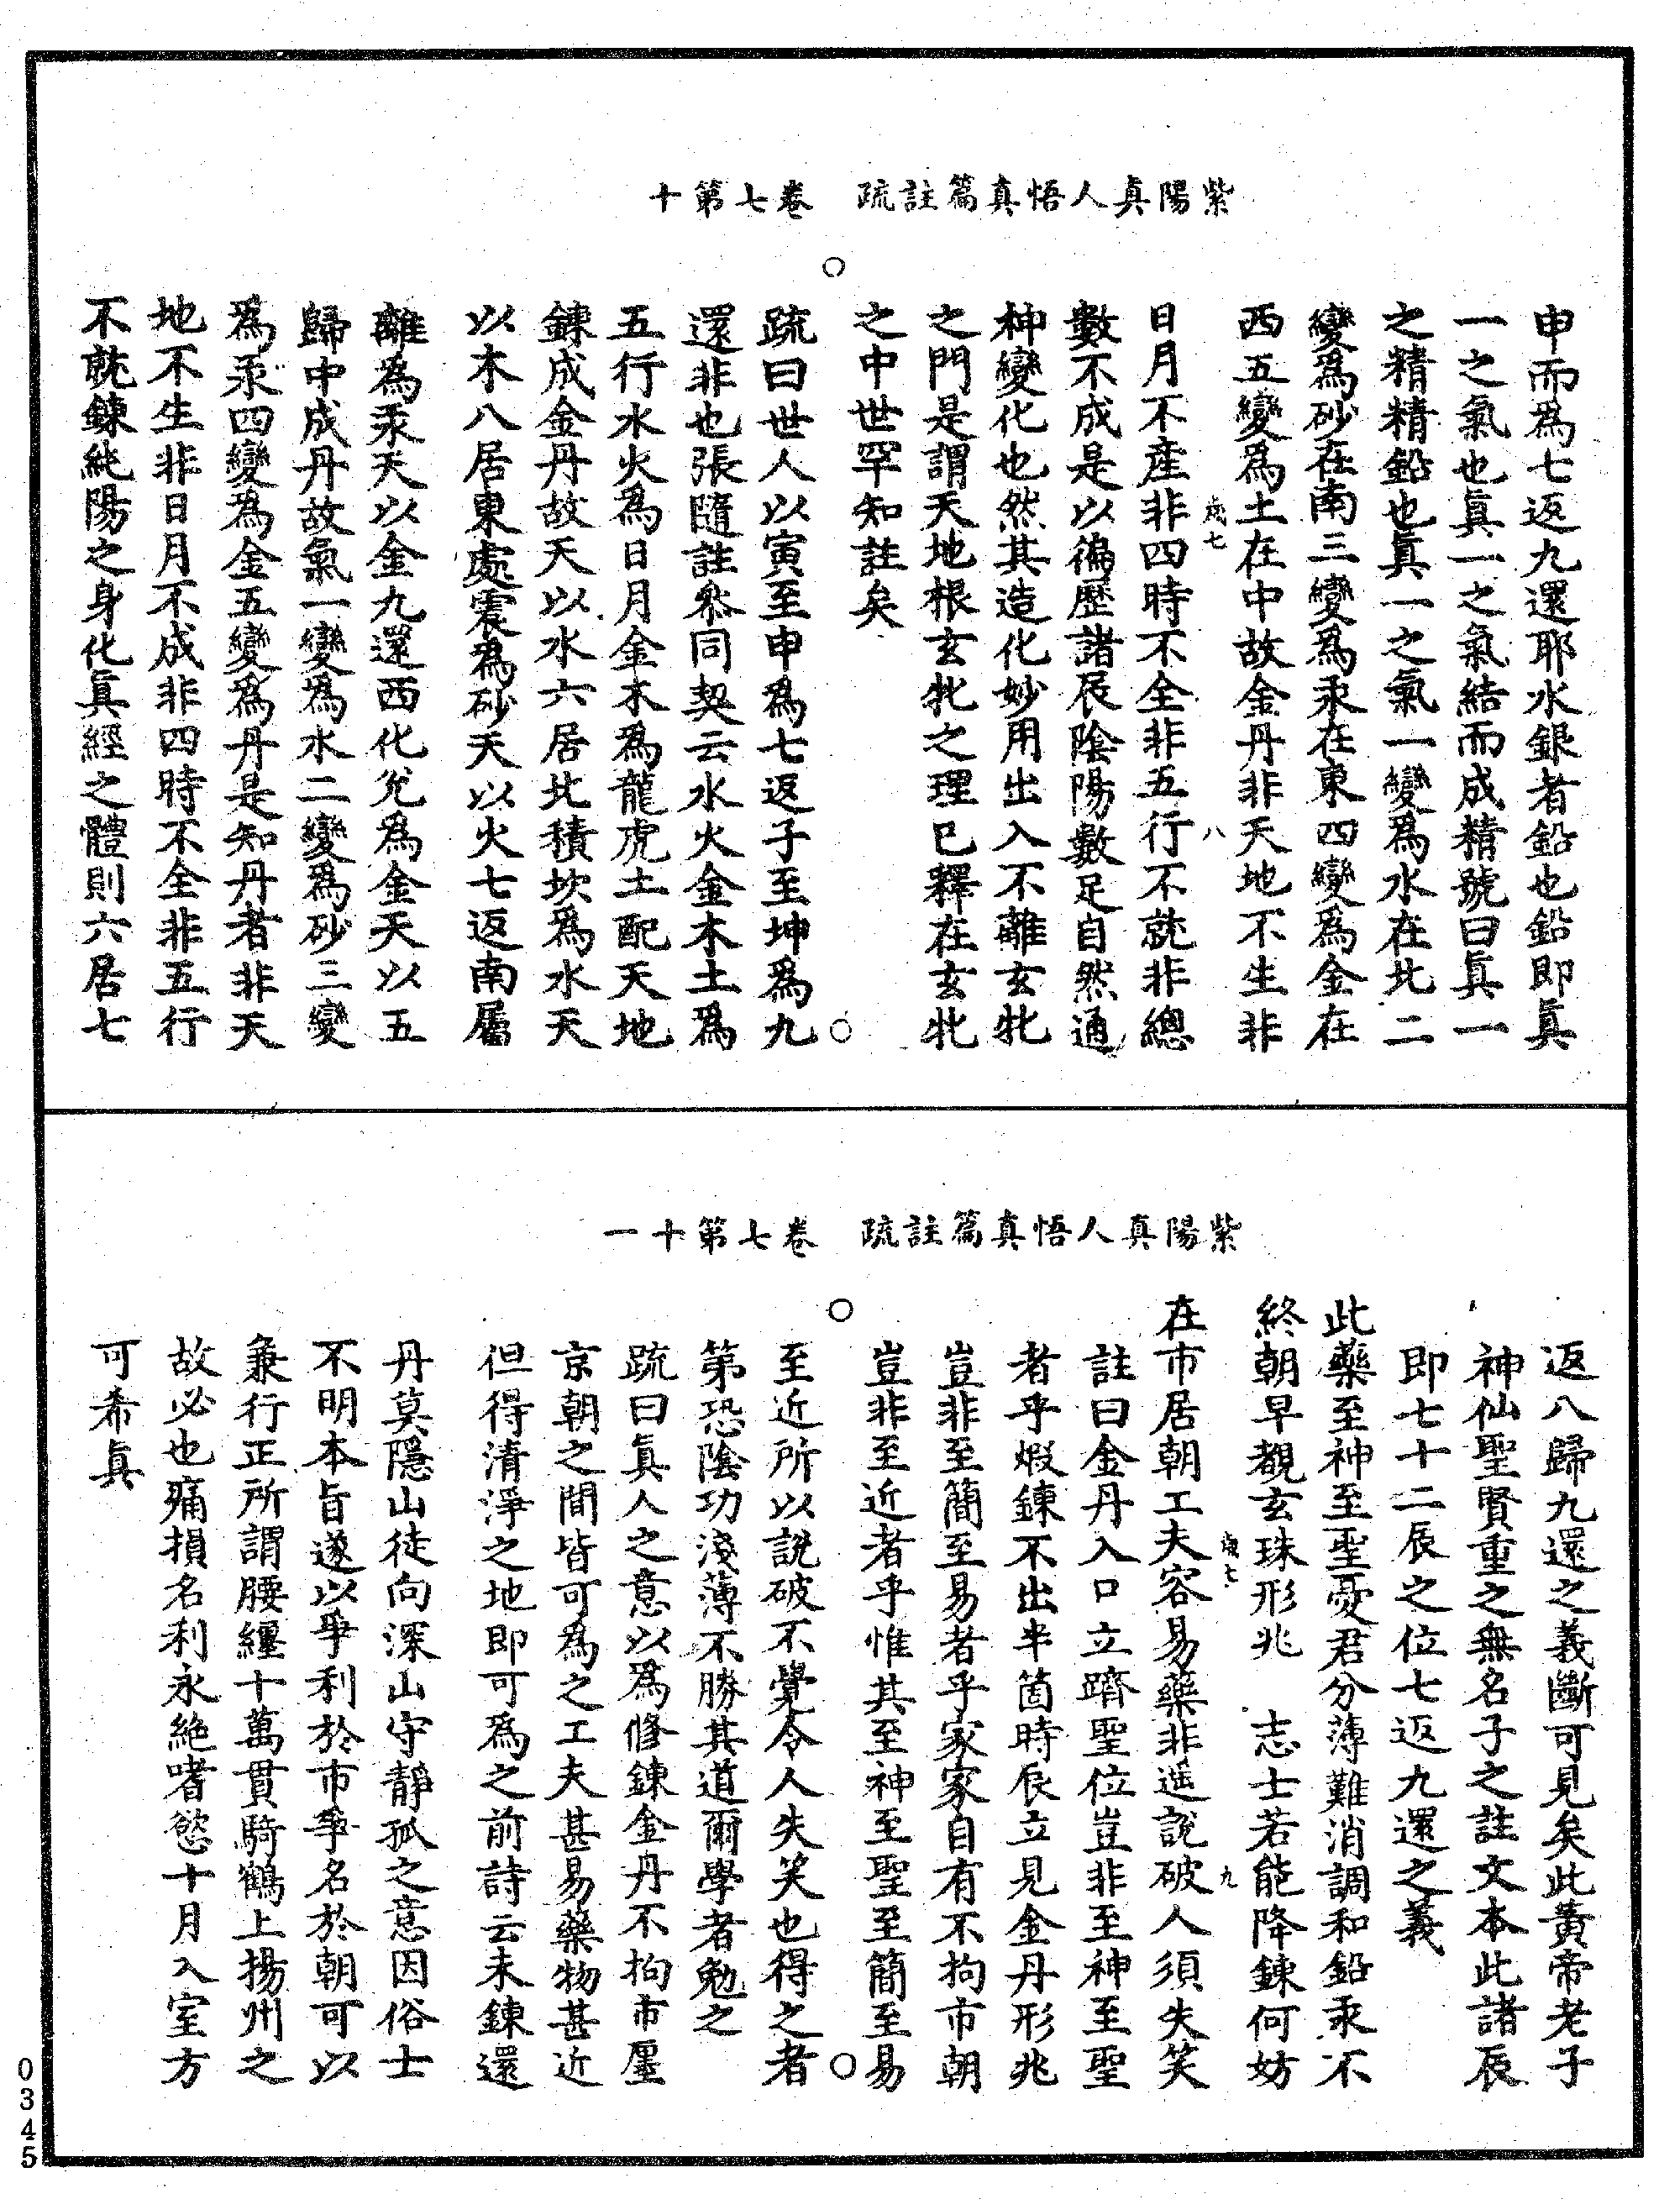 紫陽真人悟真篇註疏　卷七第十
申而爲七返九還耶水銀者鉛也鉛即眞
一之氣也眞一之氣結而成精號曰眞一
之精精鉛也眞一之氣一變爲水在北二
變爲砂在南三變爲汞在東四變爲金在
西五變爲土在中故金丹非天地不生非
歲七　八
日月不產非四時不全非五行不就非總
數不成是以徧歷諸辰陰陽數足自然通
神變化也然其造化妙用出入不離玄牝
之門是謂天地根玄牝之理已釋在玄牝
之中世罕知註矣
疏曰世人以寅至申爲七返子至坤爲九
還非也張隨註叅同契云水火金木土爲
五行水火爲日月金木爲龍虎土配天地
鍊成金丹故天以水六居北積坎爲水天
以木八居東處震爲砂天以火七返南屬
離爲汞天以金九還西化兊爲金天以五
歸中成丹故氣一變爲水二變爲砂三變
爲汞四變爲金五變爲丹是知丹者非天
地不生非日月不成非四時不全非五行
不就鍊純陽之身化眞經之體則六居七
紫陽真人悟真篇註疏　卷七第十一
返八歸九還之義斷可見矣此黃帝老子
神仙聖賢重之無名子之註文本此諸辰
即七十二辰之位七返九還之義
此藥至神至聖憂君分薄難消調和鉛汞不
終朝早覩玄珠形兆　志士若能降鍊何妨
歲七　九
在市居朝工夫容易藥非遥說破人須失笑
註曰金丹入口立躋聖位豈非至神至聖
者乎煆鍊不出半箇時辰立見金丹形兆
豈非至簡至易者乎家家自有不拘市朝
豈非至近者乎惟其至神至聖至簡至易
至近所以說破不覺令人失笑也得之者
第恐陰功淺薄不勝其道爾學者勉之
疏曰眞人之意以爲修鍊金丹不拘市廛
京朝之間皆可為之工夫甚易藥物甚近
但得清淨之地即可爲之前詩云未鍊還
丹莫隱山徒向深山守靜孤之意因俗士
不明本旨遂以爭利於市爭名於朝可以
兼行正所謂腰纏十萬貫騎鶴上揚州之
故必也痛損名利永絶嗜慾十月入室方
可希眞
0345